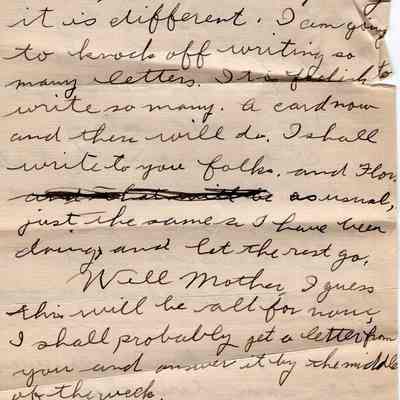 it is different. I am going
to knock off writing so
many letters. It is foolish to
write so many. A card now
and then will do. I shall
write to you folks, and Flor.
and that will be as usual,
just the same as I have been
doing, and let the rest go.
Well Mother, I guess
this will be all for now,
I shall probably get a letter from
you and answer it by the middle
of the week.